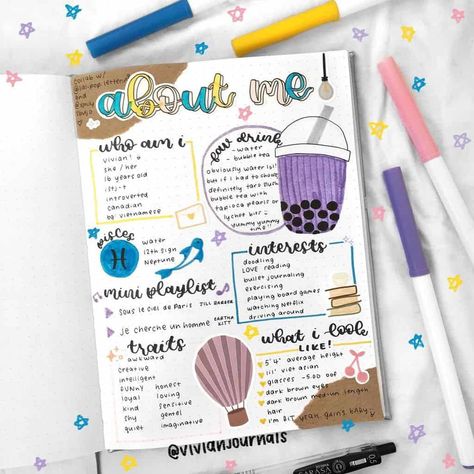 collab w/
about me
who am i
vivian!
she/her
16 years old
istj-t
introverted
canadian
bg vietnamese
fav drink
- water
- bubble tea
obviously water is #1
but if i had to choose
definitely taro slush
bubble tea with
tapioca pearls or
lychee bits
yummy yummy
time!!
pisces
water
12th sign
Neptune
mini playlist
sous le ciel de Paris
je cherche un homme
EARTHA
KITT
interests
doodling
LOVE reading
bullet journaling
exercising
playing board games
watching Netflix
driving around
traits
awkward
creative
intelligent
funny honest
loyal loving
kind sensitive
shy
quiet imaginative
what i look
LIKE!
5'4" average height
glasses
dark brown eyes
dark brown medium length
hair
@VIVIANJOURNALS
SARASA
0.5